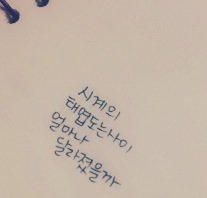 시계의
태엽도는사이
얼마나
달라졌을까